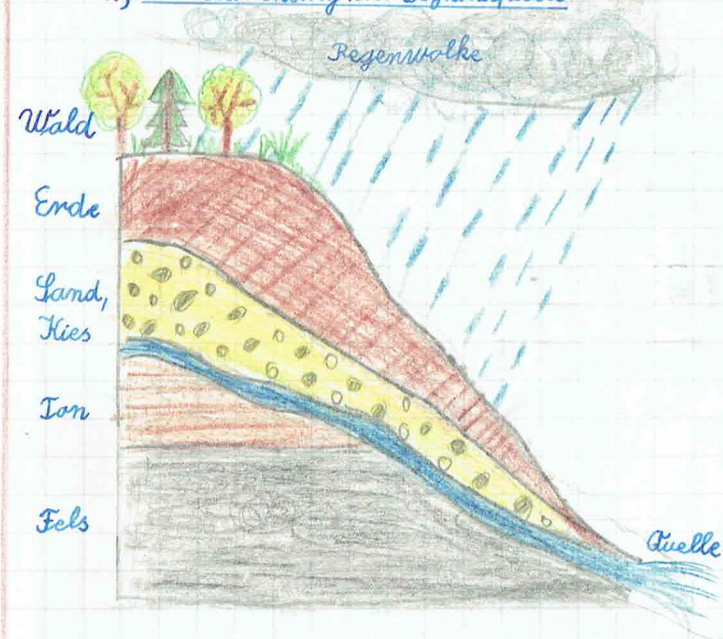 Regenwolke
Wald
Erde
Sand,
Kies
Ton
Fels
Quelle